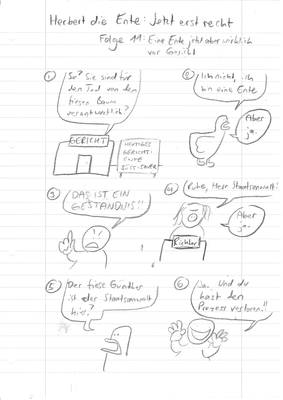 Herbert die Ente: Jetzt erst recht
Folge 11: Eine Ente jetzt aber wirklich
vor Gericht
1
So? Sie sind für
den Tod von dem
fiesen Baum
verantwortlich?
GERICHT
HEUTIGES
GERICHT:
ENTE
SÜSS-SAUER
2
Ich nicht, ich
bin eine Ente
Aber
ja.
3
DAS IST EIN
GESTÄNDNIS!!
4
Ruhe, Herr Staatsanwalt!
Aber
ja.
Richter
5
Der fiese Günther
ist der Staatsanwalt
hier?
6
Ja. Und du
hast den
Prozess verloren!!